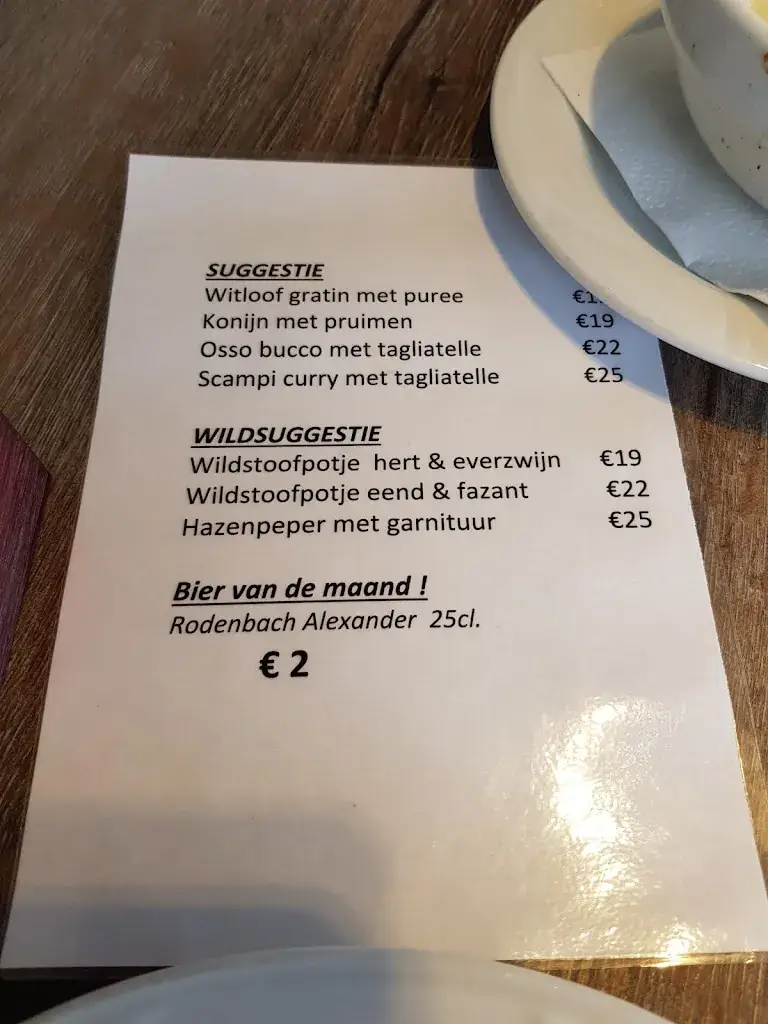 SUGGESTIE
Witloof gratin met puree
Konijn met pruimen €19
Osso bucco met tagliatelle €22
Scampi curry met tagliatelle €25
WILDSUGGESTIE
Wildstoofpotje hert & everzwijn €19
Wildstoofpotje eend & fazant €22
Hazenpeper met garnituur €25
Bier van de maand !
Rodenbach Alexander 25cl.
€ 2